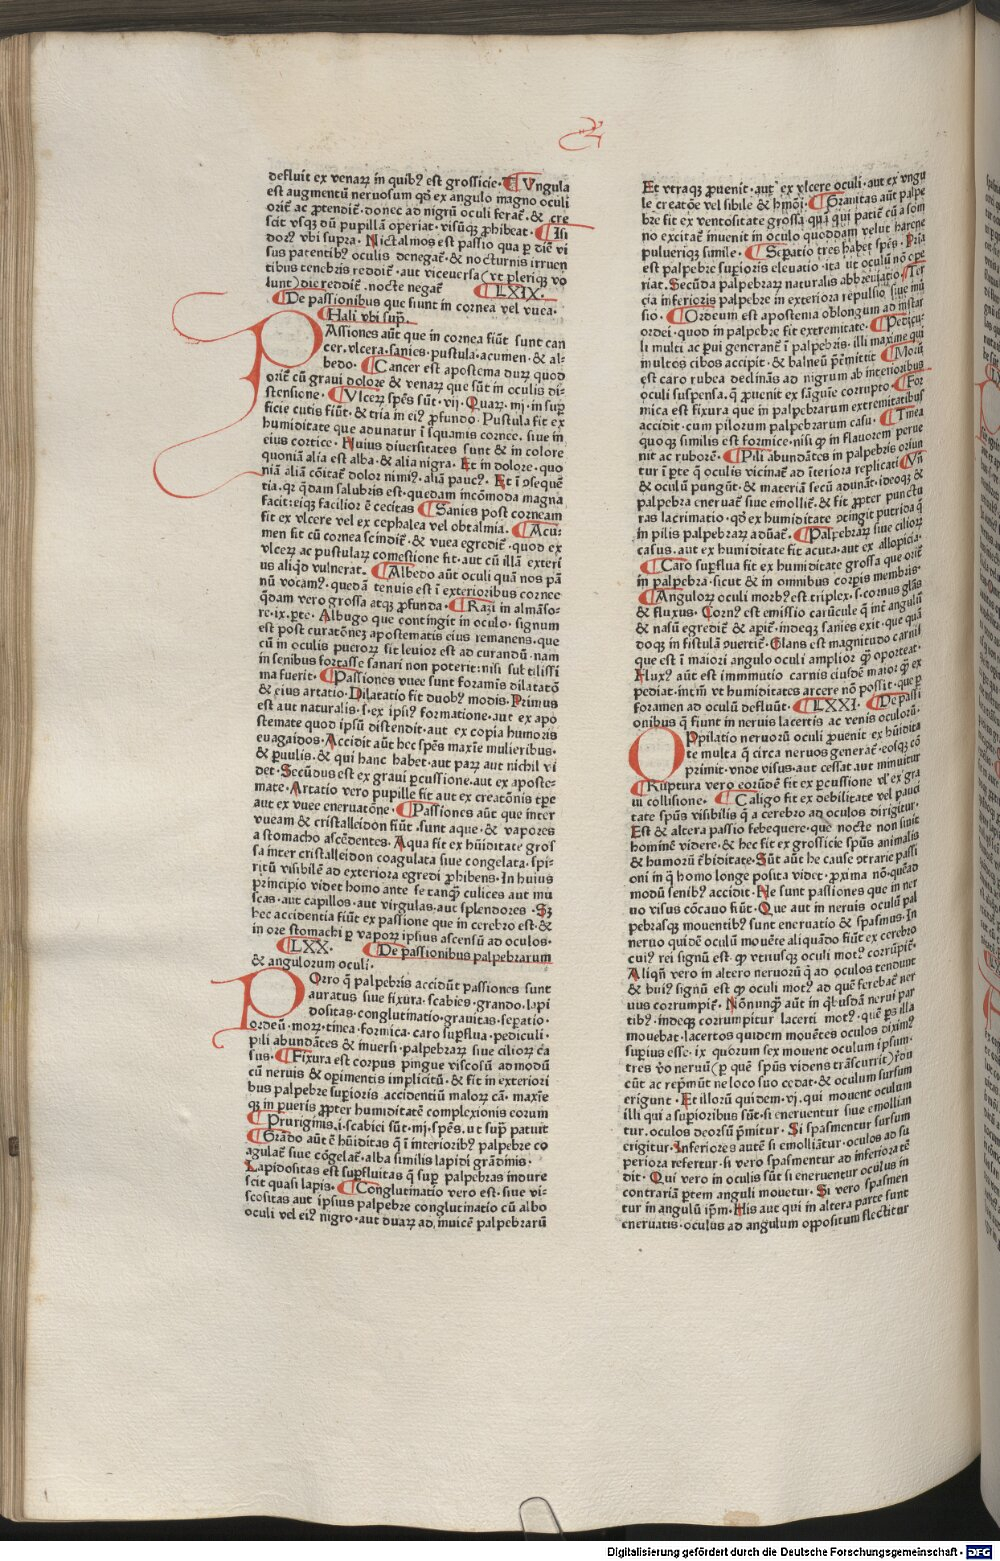 defluit ex venaꝝ in quibꝰ est grossicie. ¶ Vngula
est augmentū neruosum qd̓ ex angulo magno oculi
orit̄ ac ꝓtendit̄. donec ad nigrū oculi ferat̄. & cre
scit vsqꝫ dū pupillā operiat. visūqꝫ ꝓhibeat. ¶ Isi
doꝝ vbi supra. Nictalmos est passio qua ꝑ diē vi
sus patentibꝰ oculis denegat̄. & nocturnis irruen
tibus tenebris reddit̄. aut viceuersa (vt pleriqꝫ vo
lunt) die reddit̄. nocte negat̄ ¶ LXIX.
¶ De passionibus que fiunt in cornea vel vuea.
¶ Hali vbi supͣ.
PAssiones aūt que in cornea fiūt sunt can
cer. vlcera. sanies. pustula. acumen. & al-
bedo. ¶ Cancer est apostema duꝝ quod
orit̄ cū graui dolore & venaꝝ que sūt in oculis di-
stensione. ¶ Vlceꝝ spēs sūt. vij. Quaꝝ. iiij. in supͣ
ficie cutis fiūt. & tria in eiꝰ ꝓfundo. Pustula fit ex
humiditate que adunatur ī squamis cornee. siue in
eius cortice. Huius diuersitates sunt & in colore
quoniā alia est alba. & alia nigra. Et in dolore. quo
niā aliā cōitat̄ dolor nimiꝰ. aliā paucꝰ. Et ī ɔsequē
tia. qꝛ q̄dam salubris est. quedam incōmoda magna
facit: eiqꝫ facilior ē cecitas ¶ Sanies post corneam
fit ex vlcere vel ex cephalea vel obtalmia. ¶ Acu-
men fit cū cornea scindit̄. & vuea egredit̄. quod ex
vlceꝝ ac pustulaꝝ comestione fit. aut cū illā exteri
us aliqd̓ vulnerat. ¶ Albedo aūt oculi quā nos pā
nū vocamꝰ. quedā tenuis est ī exterioribus cornee
q̄dam vero grossa atqꝫ ꝓfunda. ¶ Razi in almāso-
re. ix. ꝑte. Albugo que contingit in oculo. signum
est post curatōneꝫ apostematis eius remanens. que
cū in oculis pueroꝝ sit leuior est ad curandū. nam
in senibus fortasse sanari non poterit: nisi sub tilissi
ma fuerit. ¶ Passiones vuee sunt foramīs dilatatō
& eius artatio. Dilatatio fit duobꝰ modis. Primus
est aut naturalis. s. ex ipsiꝰ formatione. aut ex apo
stemate quod ipsū distendit. aut ex copia humoris
euagaidos. Accidit aūt hec spēs maxīe mulieribus.
& ꝑuulis. & qui hanc habet. aut paꝝ aut nichil vi
det. Secūdus est ex graui ꝑcussione. aut ex aposte-
mate. Artatio vero pupille fit aut ex creatōnis tꝑe
aut ex vuee eneruatōne. ¶ Passiones aūt que inter
vueam & cristalleidon fiūt. sunt aque. & vapores
a stomacho ascēdentes. Aqua fit ex hūiditate gros
sa inter cristalleidon coagulata siue congelata. spi-
ritū visibilē ad exteriora egredi ꝓhibens. In huius
principio videt homo ante se tanqͣꝫ culices aut mu
scas. aut capillos. aut virgulas. aut splendores. Sꝫ
hec accidentia fiūt ex passione que in cerebro est. &
in ore stomachi ꝑ vaporꝝ ipsius ascensū ad oculos.
¶ LXX. ¶ De passionibus palpebrarum
& angulorum oculi.
POrro q̄ palpebris accidūt passiones sunt
auratus siue fixura. scabies. grando. lapi
dositas. conglutinatio. grauitas. seꝑatio.
ordeū. moꝝ. tinea. formica. caro suꝑflua. pediculi.
pili abundātes & inuersi. palpebraꝝ siue cilioꝝ cā
sus. ¶ Fixura est corpus pingue viscosū ad modū
cū neruis & operimentis implicitū. & fit in exteriori
bus palpebre suꝑioris accidentiū maloꝝ cā. maxīe
qꝫ in pueris ꝓpter humiditatē complexionis eorum
¶ Pruriginis. i. scabici sūt. iiij. spēs. ut supͣ patuit
¶ Grādo aūt ē hūiditas q̄ ī interioribꝰ palpebre co
agulat̄ siue cōgelat̄. alba similis lapidi grādinis.
Lapidositas est suꝑfluitas q̄ suꝑ palpebras indure
scit quasi lapis. ¶ Conglutinatio vero est. siue vi-
scositas aut ipsius palpebre conglutinatio cū albo
oculi vel eiꝰ nigro. aut duaꝝ ad. inuicē palpebrarū
Et vtraqꝫ ꝓuenit. aut ex vlcere oculi. aut ex vngu
le creatōe vel sibile & hmōi. ¶ Grauitas aūt palpe
bre fit ex ventositate grossa qua qui patit̄ cū a som
no excitat̄ inuenit in oculo quoddam velut harene
pulueriqꝫ simile. ¶ Seꝑatio tres habet spēs. Pria
est palpebre suꝑioris eleuatio. ita ut oculū nō cꝑe
riat. Secūda palpebraꝝ naturalis abbreuiatio. Ter
cia inferioris palpebre in exteriora repulsio siue inū
sio. ¶ Ordeum est apostema oblongum ad instar
ordei. quod in palpebre fit extremitate. ¶ Pedicu-
li multi ac ꝑui generant̄ ī palpebris. illi maxime qui
multos cibos accipit. & balneū p̄mittit ¶ Morū
est caro rubea declināś ad nigrum ab interioribus
oculi suspensa. q̄ ꝓuenit ex sāguie corrupto. ¶ For
mica est fixura que in palpebrarum extremitatibus
accidit. cum pilorum palpebrarum casu. ¶ Tinea
quoqꝫ similis est formice. nisi ꝙ in flauorem perue
nit ac ruborē. ¶ Pili abundātes in palpebris oriun
tur ī ꝑte q̄ oculis vicinat̄ ad īteriora replicati. Vn̄
& oculū pungūt. & materiā secū adunāt. ideoqꝫ &
palpebra eneruat̄ siue emollit̄. & fit ꝓpter punctu
ras lacrimatio. qd̓ ex humiditate ɔtingit putrida q̄
in pilis palpebraꝝ adūat̄. ¶ Palpebraꝝ siue cilioꝝ
casus. aut ex humiditate fit acuta. aut ex allopicia.
¶ Caro suꝑflua fit ex humiditate grossa que orit̄
in palpebra. sicut & in omnibus corꝑis membris.
¶ Anguloꝝ oculi morbꝰ est triplex. s. cornus glās
& fluxus. Cornꝰ est emissio carūcule q̄ int̄ angulū
& nasū egredit̄ & aperit̄. indeqꝫ sanies exit. que quā
doqꝫ in fistulā ɔuertit̄. Glans est magnitudo carnis
que est ī maiori angulo oculi amplior qͣꝫ oporteat.
Fluxꝰ aūt est imminutio carnis eiusdē maior qͣꝫ ex
pediat. intm̄ vt humiditates arcere nō possit. que ꝑ
foramen ad oculū defluūt. ¶ LXXI. ¶ De passi
onibus q̄ fiunt in neruis lacertis ac venis oculorū.
OPpilatio neruorū oculi ꝓuenit ex hūidita
te multa q̄ circa neruos generat̄. eosqꝫ cō
primit. vnde visus. aut cessat aut minuitur
¶ Ruptura vero eorūdē fit ex ꝑcussione vl̓ ex gra
ui collisione. ¶ Caligo fit ex debilitate vel pauci
tate spūs visibilis q̄ a cerebro ad oculos dirigitur.
Est & altera passio febequere. que nocte non sinit
hominē videre. & hec fit ex grossicie spūs animalis
& humorū ebiditate. Sūt aūt he cause ɔtrarie passi
oni in q̄ homo longe posita videt. ꝓxima nō. queād
modū senibꝰ accidit. Ne sunt passiones que in ner
uo visus cōcauo fiūt. Que aut in neruis oculū pal
pebrasqꝫ mouentibꝰ sunt eneruatio & spasmus. In
neruo quidē oculū mouēte aliquādo fiūt ex cerebro
cuiꝰ rei signū est. ꝙ vtriusqꝫ oculi motꝰ corrūpit̄.
Aliqn̄ vero in altero neruorū q̄ ad oculos tendunt
& huiꝰ signū est ꝙ oculi motꝰ ad quē ferebat̄ ner
uus corrumpit̄. Nōnunqͣꝫ aūt in q̄busdā nerui par
tibꝰ. indeqꝫ corrumpitur lacerti motꝰ. quē ꝑs illa
mouebat. lacertos quidem mouētes oculos diximꝰ
suꝑius esse. ix quorum sex mouent oculum ipsum.
tres v̄o neruū (ꝑ quē spūs videns trāscurrit) v̄dn
cūt ac rep̄mūt ne loco suo cedat. & oculum sursum
erigunt. Et illorū quidem. vj. qui mouent oculum
illi qui a suꝑioribus sūt. si eneruentur siue emollian
tur. oculos deorsū p̄mitur. Si spasmentur sursum
erigitur. Inferiores autē si emolliātur. oculos ad su
periora refertur. si vero spasmentur ad inferiora tē
dit. Qui vero in oculis sūt si eneruentur oculus in
contrariā ꝑtem anguli mouetur. Si vero spasmen
tur in angulū ip̄m. His aut qui in altera parte sunt
eneruatis. oculus ad angulum oppositum flectitur
Digitalisierung gefördert durch die Deutsche Forschungsgemeinschaft - DFG